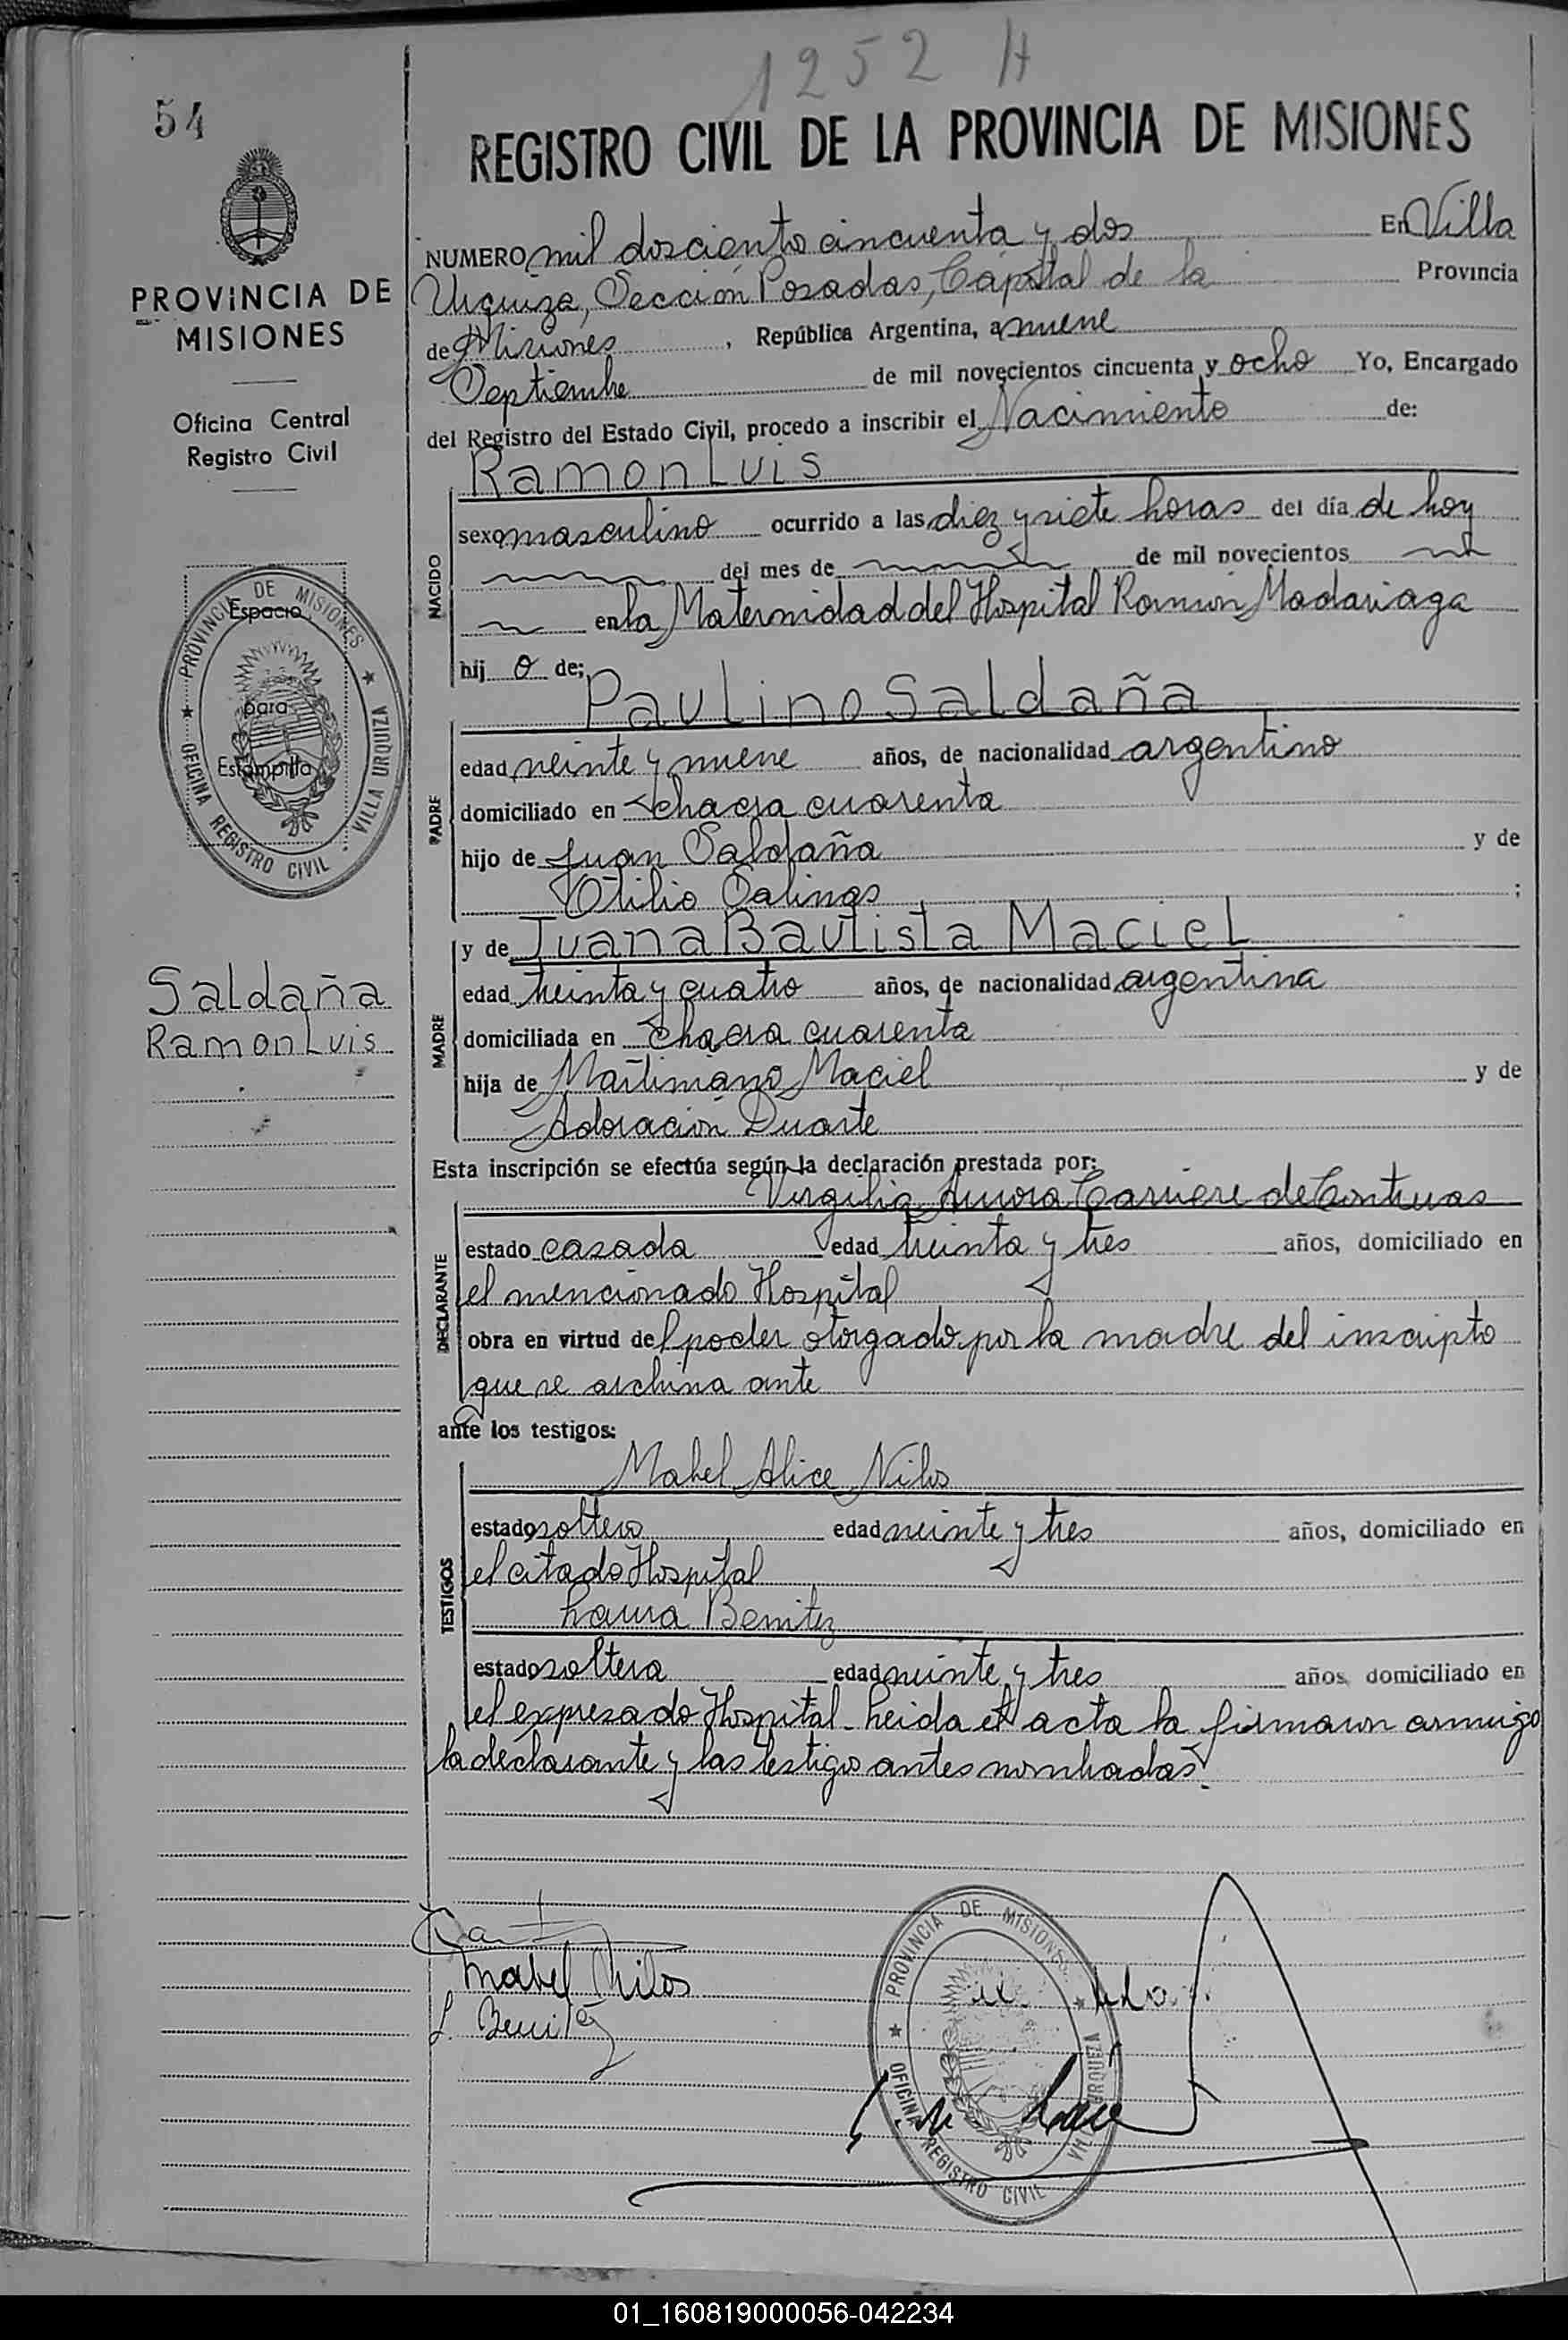 1252 H
54
REGISTRO CIVIL DE LA PROVINCIA DE MISIONES
PROVINCIA DE
MISIONES
Oficina Central
Registro Civil
PROVINCIA DE MISIONES
OFICINA REGISTRO CIVIL - VILLA URQUIZA
Espacio
para
Estampilla
Saldaña
Ramon Luis
NUMERO mil dosciento cincuenta y dos En Villa
Urquiza, Sección Posadas, Capital de la Provincia
de Misiones, República Argentina, a nueve
Septiembre de mil novecientos cincuenta y ocho Yo, Encargado
del Registro del Estado Civil, procedo a inscribir el Nacimiento de:
Ramon Luis
NACIDO
sexo masculino ocurrido a las diez y siete horas del día de hoy
del mes de de mil novecientos
en la Maternidad del Hospital Ramón Madariaga
hij o de:
Paulino Saldaña
PADRE
edad veinte y nueve años, de nacionalidad argentino
domiciliado en chacra cuarenta
hijo de Juan Saldaña y de
Otilio Salinas ;
y de Juana Bautista Maciel
MADRE
edad treinta y cuatro años, de nacionalidad argentina
domiciliada en chacra cuarenta
hija de Martimiano Maciel y de
Adoración Duarte
Esta inscripción se efectúa según la declaración prestada por:
Virgilia Aurora Carriere de Contreras
DECLARANTE
estado casada edad treinta y tres años, domiciliado en
el mencionado Hospital
obra en virtud del poder otorgado por la madre del inscripto
que se archiva ante
ante los testigos:
Mabel Alice Nilos
TESTIGOS
estado soltera edad veinte y tres años, domiciliado en
el citado Hospital
Laura Benitez
estado soltera edad veinte y tres años, domiciliado en
el expresado Hospital. Leida el acta la firmaron conmigo
la declarante y las testigos antes nombradas.
Mabel Nilos
L. Benitez
PROVINCIA DE MISIONES
OFICINA REGISTRO CIVIL VILLA URQUIZA
01_160819000056-042234